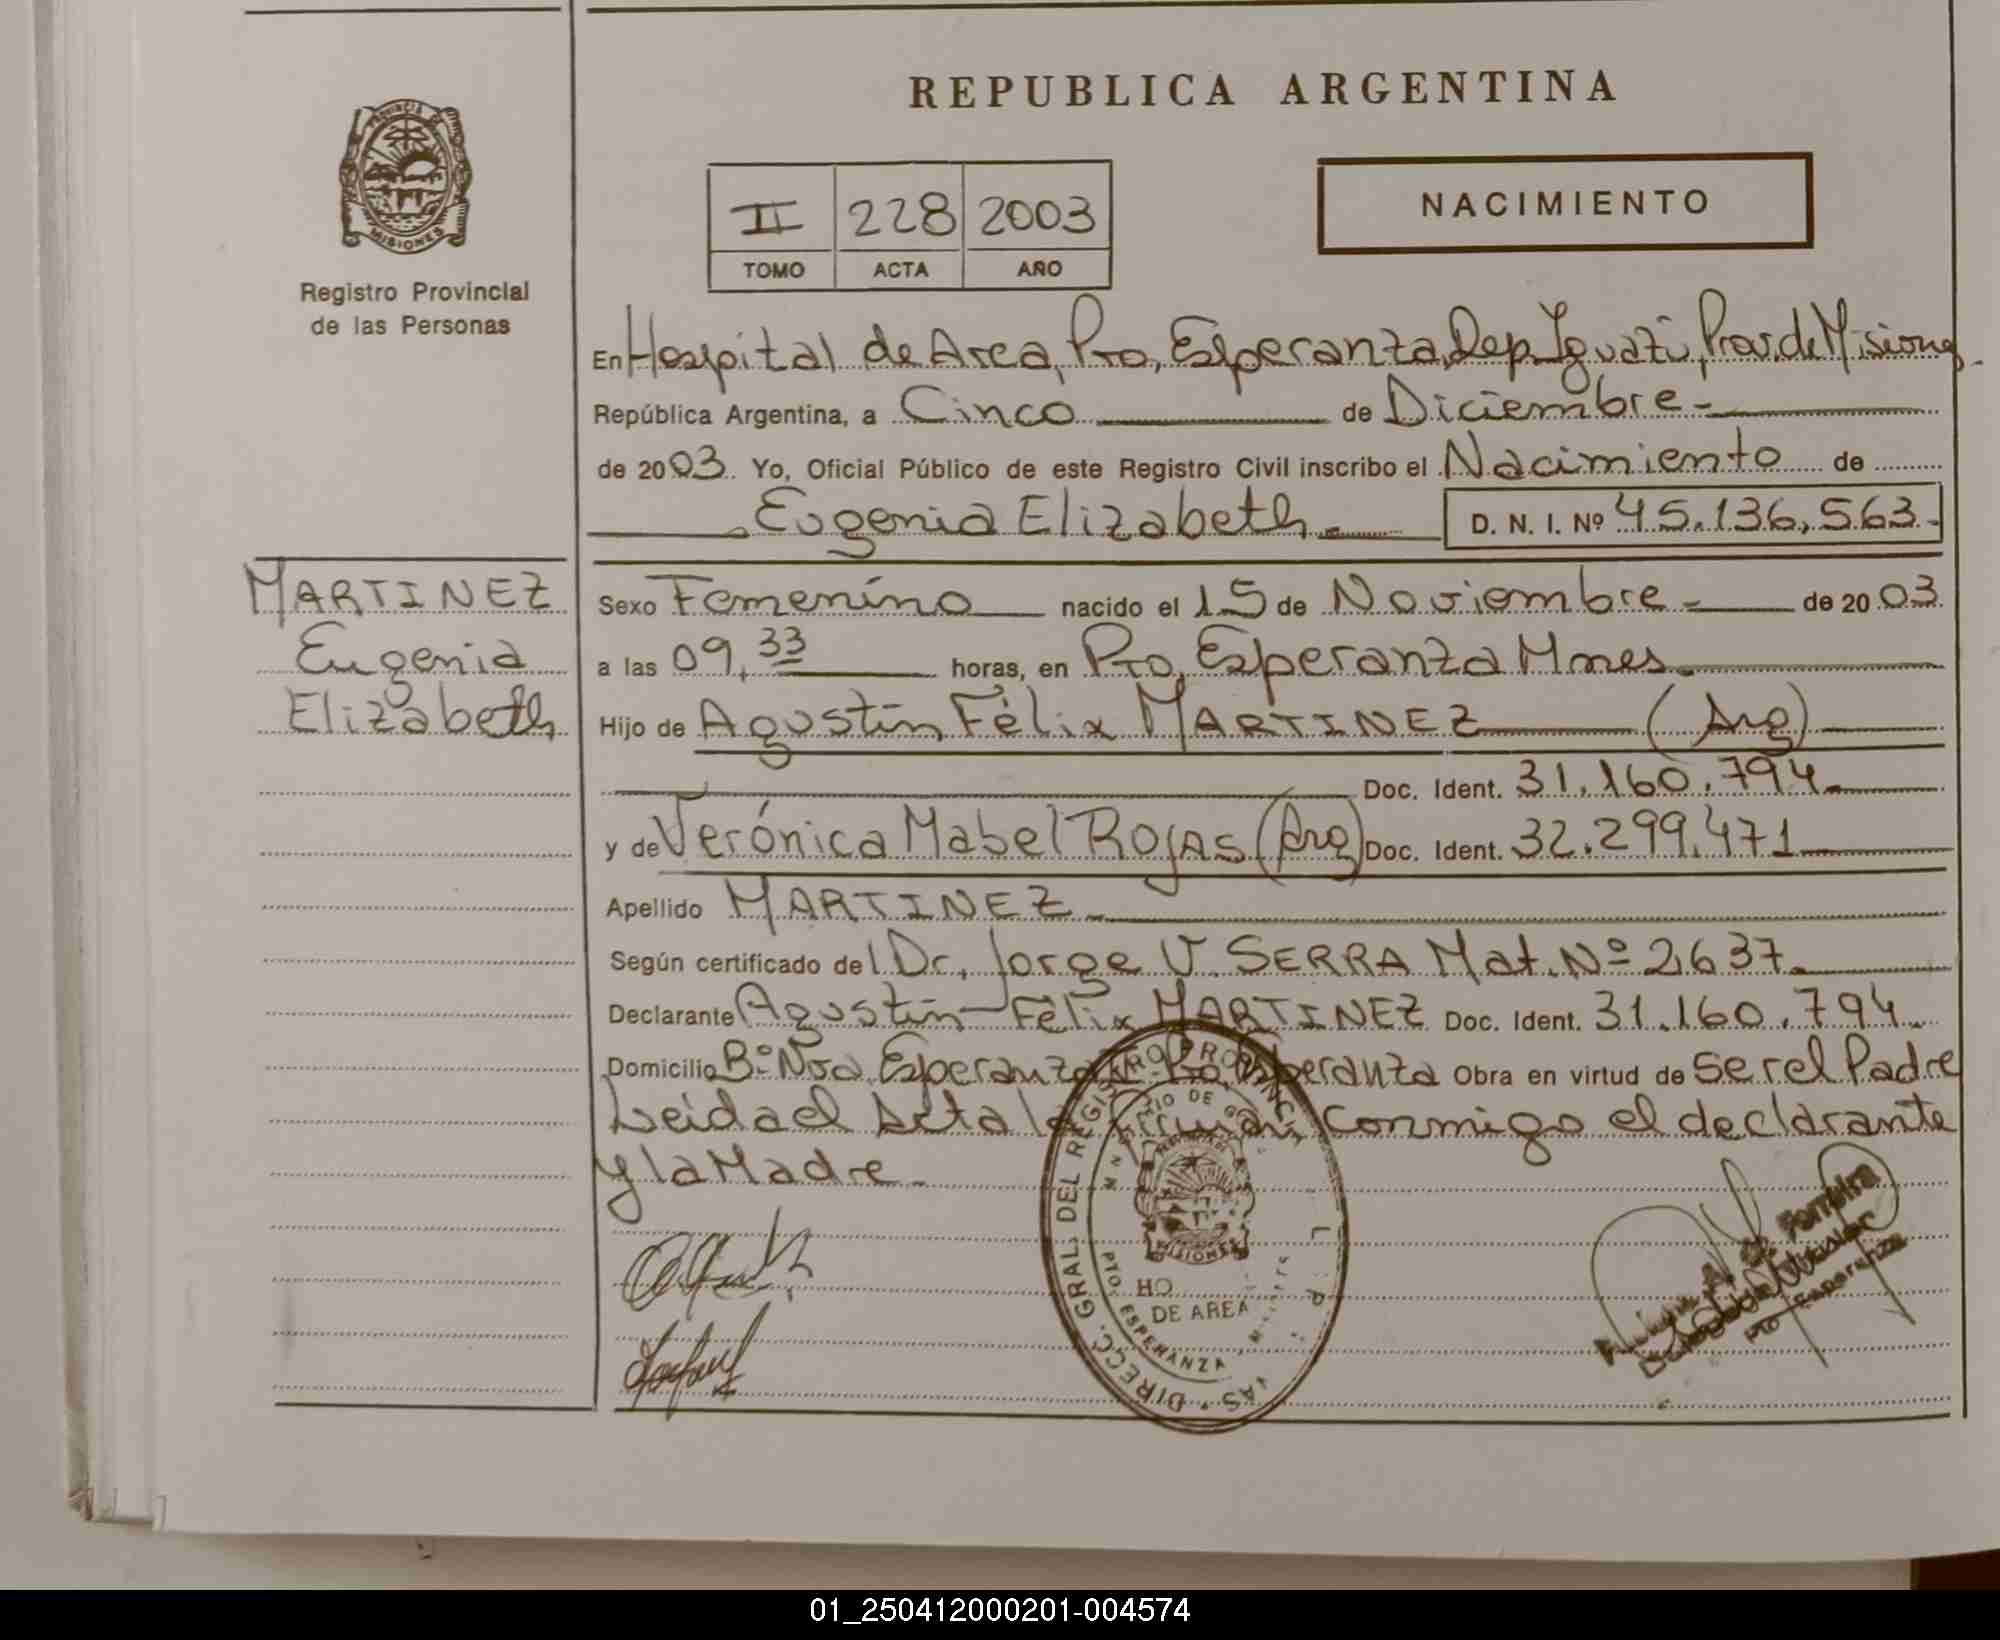 REPUBLICA ARGENTINA
PROVINCIA DE
MISIONES
Registro Provincial
de las Personas
II 228 2003
TOMO ACTA AÑO
NACIMIENTO
En Hospital de Area, Pto, Esperanza, Dep. Iguazú, Prov. de Misiones.
República Argentina, a Cinco de Diciembre -
de 2003. Yo, Oficial Público de este Registro Civil inscribo el Nacimiento de
Eugenia Elizabeth. D. N. I. Nº 45.136,563.-
MARTINEZ
Eugenia
Elizabeth
Sexo Femenino nacido el 15 de Noviembre - de 2003
a las 09,33 horas, en Pto, Esperanza Mnes.
Hijo de Agustín Félix MARTINEZ (Arg)
Doc. Ident. 31.160.794.
y de Verónica Mabel ROJAS (Arg) Doc. Ident. 32.299.471
Apellido MARTINEZ.
Según certificado del Dr. Jorge V. SERRA Mat. Nº 2637.
Declarante Agustín Félix MARTINEZ Doc. Ident. 31.160.794.
Domicilio Bº Nva Esperanza Pto, Esperanza Obra en virtud de ser el Padre
Leida el Acta la Firman Conmigo el declarante
y la Madre.
DIRECC. GRAL. DEL REGISTRO PROVINC
MISIONES
DE AREA
PTO. ESPERANZA
Ferreira
Pto Esperanza
01_250412000201-004574